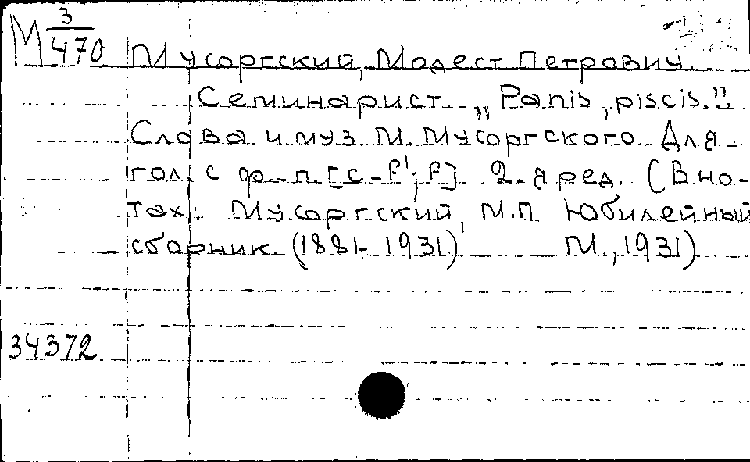 М 3/470
Мусоргский, Модест Петрович.
Семинарист. „Panis, piscis."
Слова и муз. М. Мусоргского. Для
гол. с ф-п. [c-f¹; f]. 2-я ред. (В но-
тах: Мусоргский, М.П. Юбилейный
сборник. (1881-1931) М., 1931)
34372